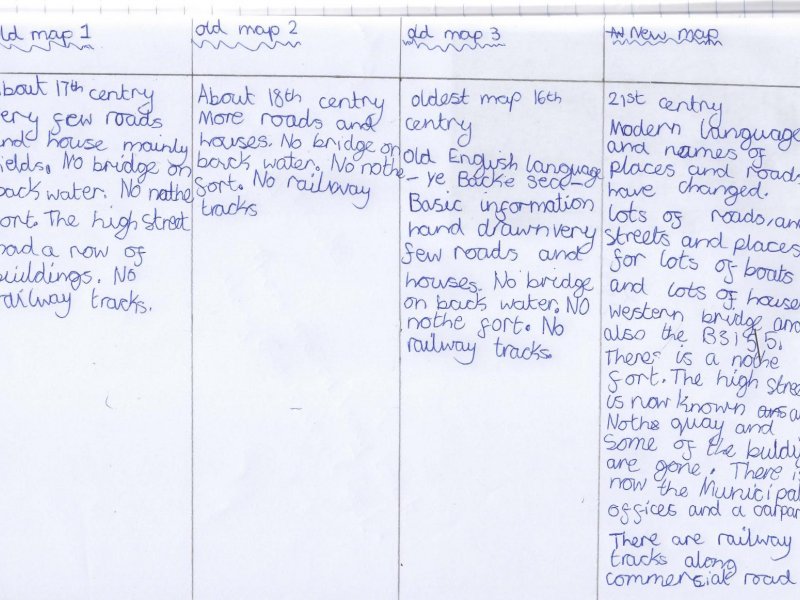 ld map 1
bout 17th centry
ery few roads
nd house mainly
ields. No bridge on
back water. No nothe
ort. The high street
had a row of
buildings. No
railway tracks.
old map 2
About 18th centry
More roads and
houses. No bridge on
back water. No nothe
fort. No railway
tracks
old map 3
oldest map 16th
centry
Old English language
- ye Backe Seca -
Basic information
hand drawn very
few roads and
houses. No bridge
on back water. NO
nothe fort. No
railway tracks.
New map
21st centry
Modern language
and names of
places and roads
have changed.
lots of roads, an
streets and places
for lots of boats
and lots of house
western bridge and
also the B3155.
Theres is a nothe
fort. The high stree
is now known as a
Noths quay and
some of the buldi
are gone. There i
now the Municipal
offices and a carpar
There are railway
tracks along
commercial road